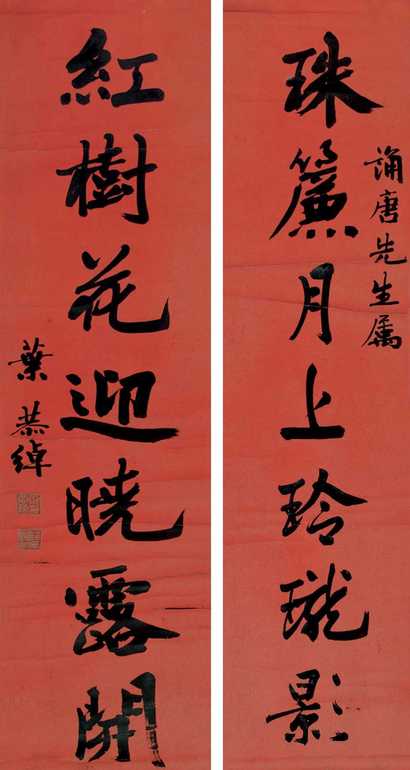 珠簾月上玲瓏影
誦唐先生属
紅樹花迎曉露開
葉恭綽